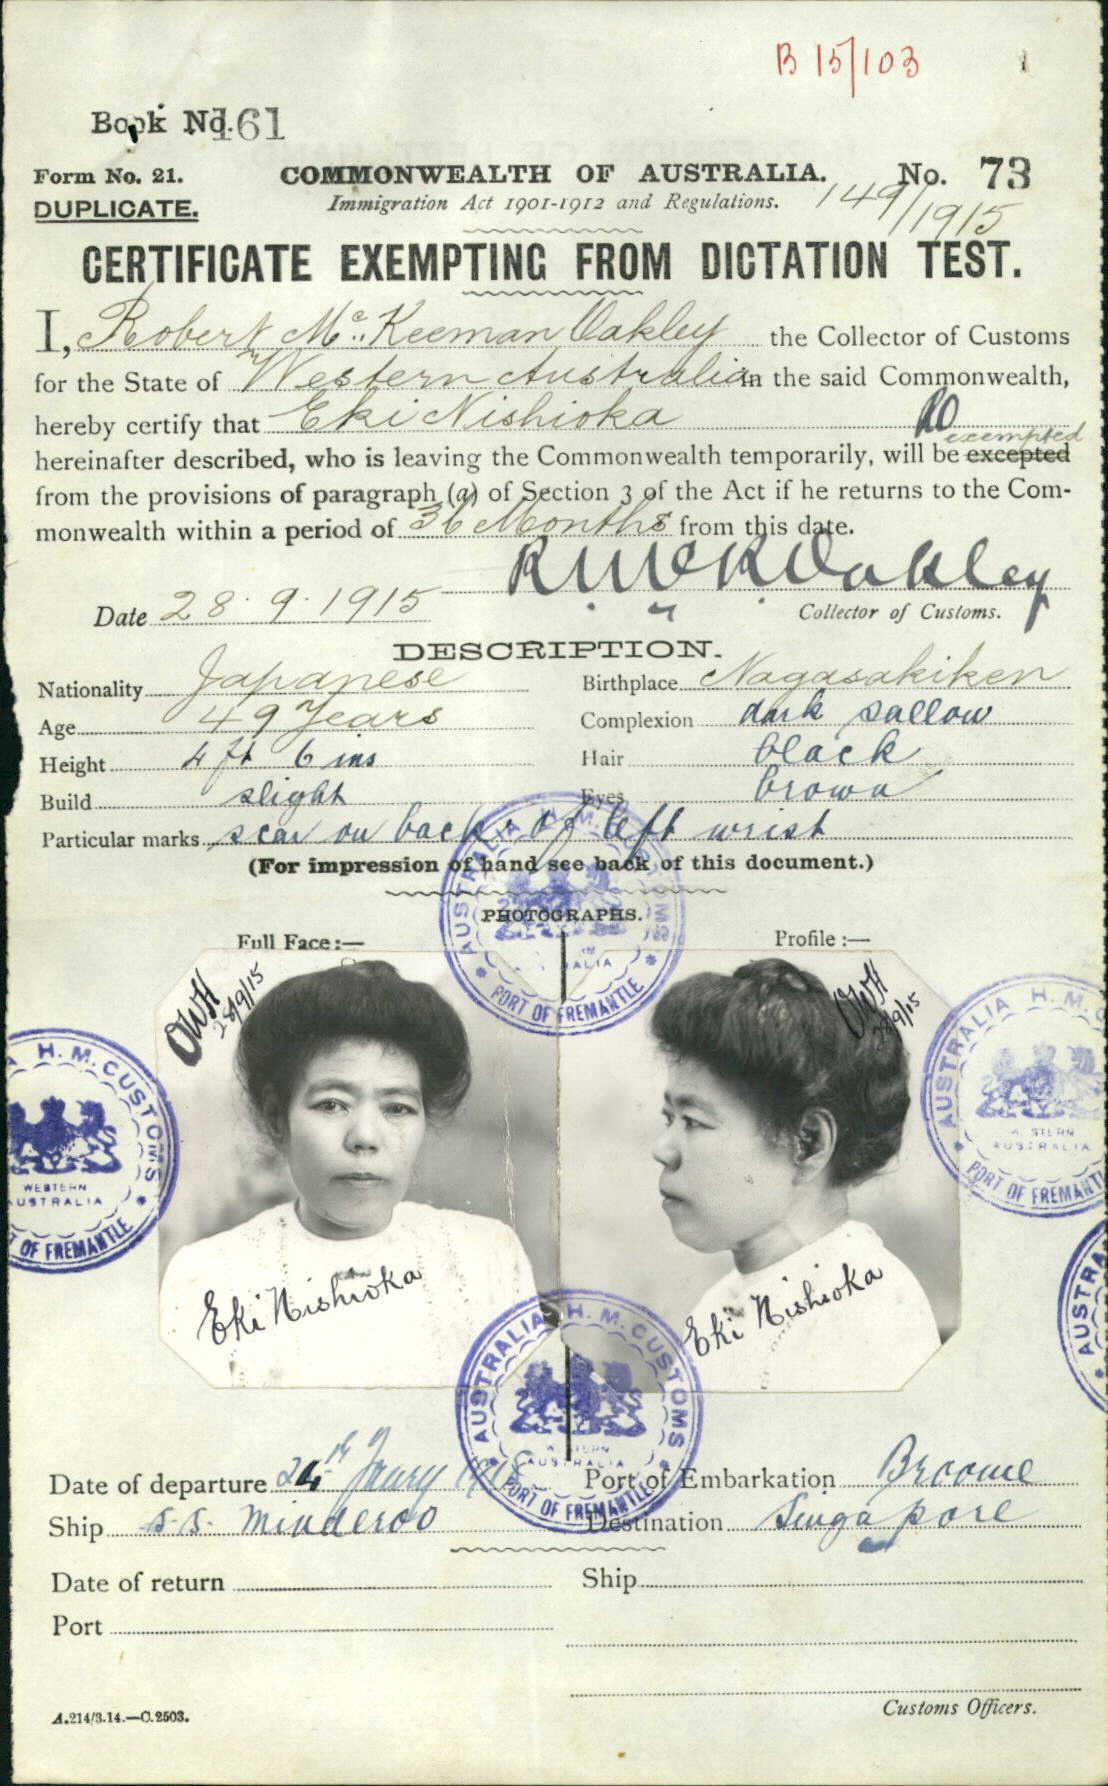 B 15/103
Book No. 161
Form No. 21. COMMONWEALTH OF AUSTRALIA. No. 73
DUPLICATE. Immigration Act 1901-1912 and Regulations. 149/1915
CERTIFICATE EXEMPTING FROM DICTATION TEST.
I, Robert Mc. Keeman Oakley the Collector of Customs
for the State of Western Australia in the said Commonwealth,
hereby certify that Eki Nishioka
RO exempted
hereinafter described, who is leaving the Commonwealth temporarily, will be excepted
from the provisions of paragraph (a) of Section 3 of the Act if he returns to the Com-
monwealth within a period of 36 Months from this date.
R McK Oakley
Date 28.9.1915 Collector of Customs.
DESCRIPTION.
Nationality Japanese Birthplace Nagasakiken
Age 49 Years Complexion dark sallow
Height 4 ft 6 ins Hair black
Build slight Eyes brown
Particular marks scar on back of left wrist
(For impression of hand see back of this document.)
PHOTOGRAPHS.
Full Face:— Profile:—
OWH 28/9/15 OWH 28/9/15
AUSTRALIA H. M. CUSTOMS PORT OF FREMANTLE
H. M. CUSTOMS WESTERN AUSTRALIA OF FREMANTLE
AUSTRALIA H. M. C AUSTRALIA PORT OF FREMANTLE
AUSTRA
Eki Nishioka Eki Nishioka
AUSTRALIA H. M. CUSTOMS AUSTRALIA PORT OF FREMANTLE
Date of departure 24th Janry Port of Embarkation Broome
Ship S.S. Minderoo Destination Singapore
Date of return Ship
Port
A.214/3.14.—C.2503. Customs Officers.